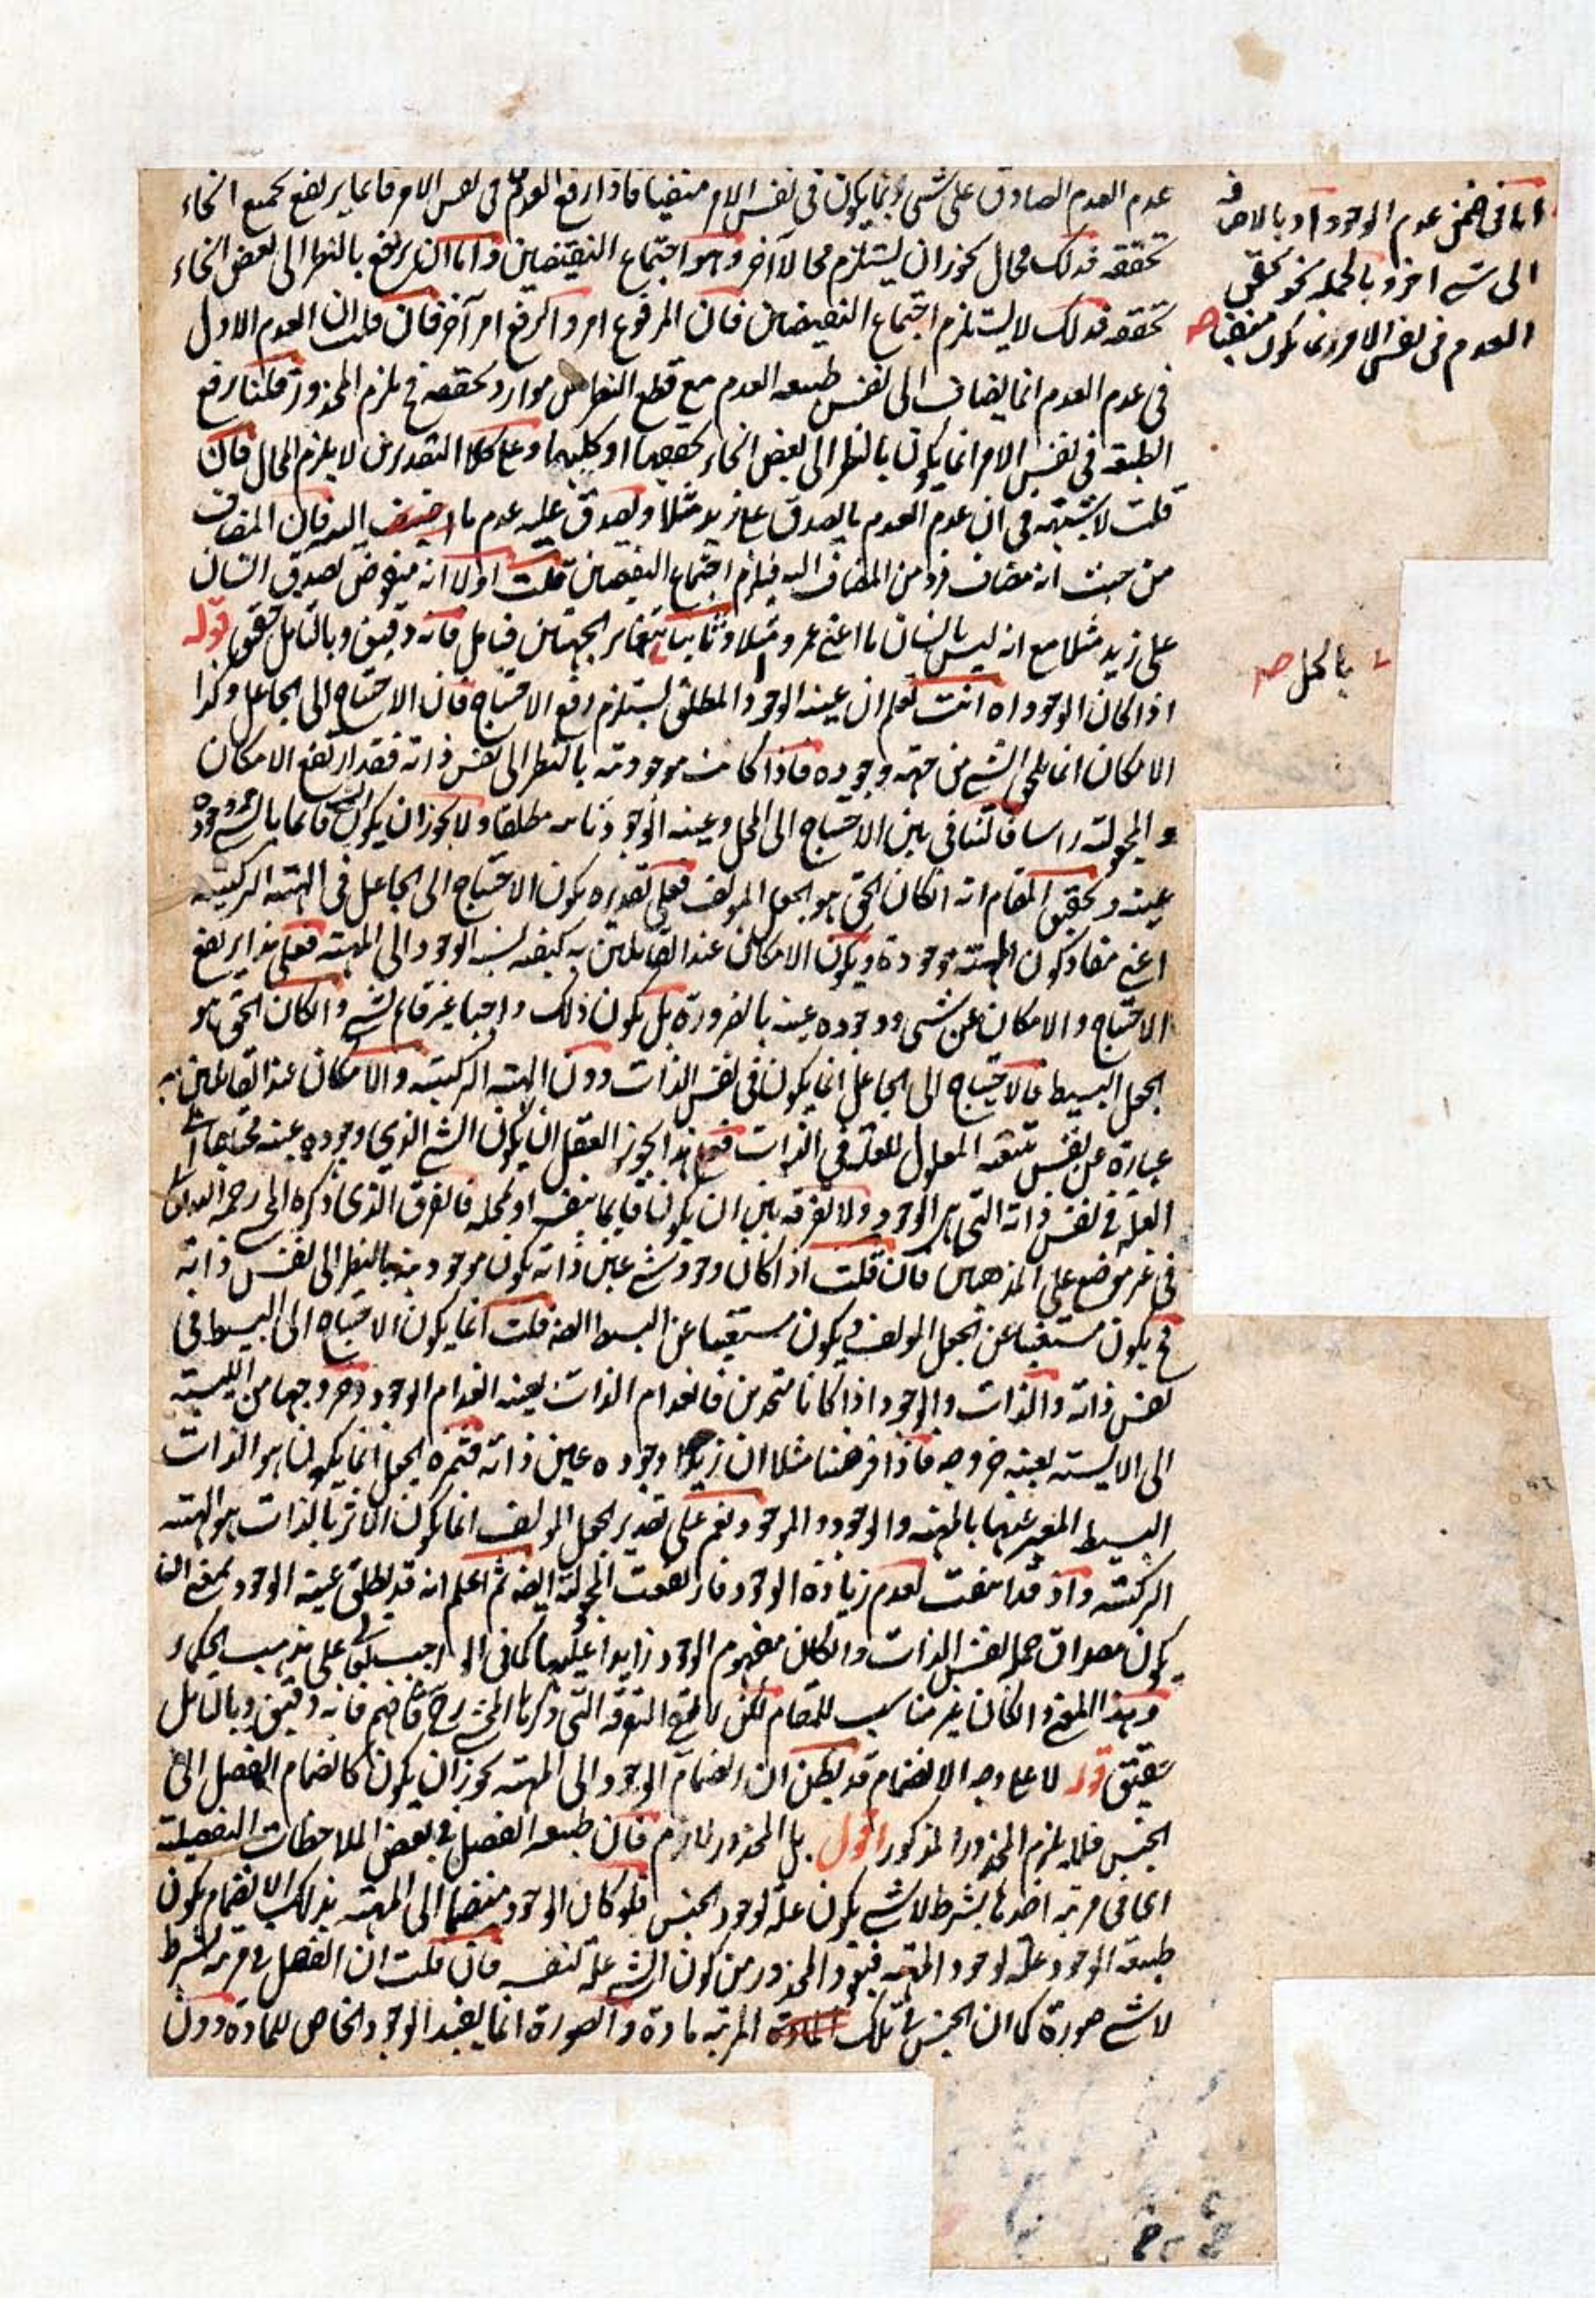 عدم العدم الصادق على شئ وانما يكون فى نفس الامر منفيا فاذا ارتفع العدم فى نفس الامر فانما يرتفع بجميع انحاء
تحققه فذلك محال يجوز ان يستلزم محالا آخر وهو اجتماع النقيضين واما ان يرتفع بالنظر الى بعض انحاء
تحققه فذلك لا يستلزم اجتماع النقيضين فان المرفوع امر والرفع امر آخر فان قلت ان العدم الاول
فى عدم العدم انما يضاف الى نفس طبيعه العدم مع قطع النظر عن موارد تحققه فح يلزم المحذور قلنا رفع
الطبيعه فى نفس الامر انما يكون بالنظر الى بعض انحاء تحققها او كليهما وعلى كلا التقديرين لا يلزم المحال فان
قلت لا شبهه فى ان عدم العدم يصدق على زيد مثلا ويصدق عليه عدم ما اضيف اليه فان المضاف
من حيث انه مضاف فرد من المضاف اليه فيلزم اجتماع النقيضين قلت اولا انه منقوض بصدق انسان
على زيد مثلا مع انه ليس بانسان ما اعنى عمرو مثلا وثانيا بتغاير الجهتين فتامل فانه دقيق وبالتامل حقيق قوله
اذا كان الوجود اه انت تعلم ان عينيه الوجود المطلق يستلزم رفع الاحتياج فان الاحتياج الى الجاعل وكذا
الامكان انما يلحق الشئ من جهه وجوده فاذا كانت موجوديته بالنظر الى نفس ذاته فقد ارتفع الامكان
والمجعوليه راسا فالتنافى بين الاحتياج الى المحل وعينيه الوجود ثابت مطلقا ولا يجوز ان يكون الشئ قائما بالشئ ووجوده
عينه وتحقيق المقام انه ان كان الحق هو الجعل المولف فعلى تقديره يكون الاحتياج الى الجاعل فى الهيئه التركيبيه
اعنى مفاد كون المهيه موجودة ويكون الامكان عند القائلين به كيفيه نسبه الوجود الى المهيه فعلى هذا يرتفع
الاحتياج والامكان عن شئ ووجوده عينه بالضرورة بل يكون ذلك واجبا غير قائم لشئ وان كان الحق هو
الجعل البسيط فالاحتياج الى الجاعل انما يكون فى نفس الذات دون الهيئه التركيبيه والامكان عند القائلين به
عبارة عن نفس تبعيه المعلول للعله فى الذات فعلى هذا يجوز العقل ان يكون الشئ الذى وجوده عينه محتاجا الى
العله فى نفس ذاته التى هى الوجود ولا تفرقه بين ان يكون قائما بنفسه او لمحله فالفرق الذى ذكره المحشى رحمه الله
فى غير موضع على المذهبين فان قلت اذا كان وجود شئ عين ذاته يكون موجوديته بالنظر الى نفس ذاته
فح يكون مستغنيا عن الجعل المولف فيكون مستغنيا عن البسيط ايضه قلت انما يكون الاحتياج الى البسيط فى
نفس ذاته والذات والوجود اذا كانا متحدين فانعدام الذات بعينه انعدام الوجود وخروجها من الليسيه
الى الايسيه بعينه خروجه فاذا فرضنا مثلا ان زيدا وجوده عين ذاته فثمره الجعل انما يكون هو الذات
البسيط المعبر عنها بالمهيه والوجود والموجود نعم على تقدير الجعل المولف انما يكون الاثر بالذات هو الهيئه
التركيبيه واذ قد انتفت لعدم زيادة الوجود فارتفعت المجعوليه ايضه ثم اعلم انه قد يطلق عينيه الوجود بمعنى ان
يكون مصداق حمله نفس الذات وان كان مفهوم الوجود زايدا عليها كما فى الواجب تعالى على مذهب الحكماء
وهذا المعنى وان كان غير مناسب للمقام لكن لا يصح التفرقه التى ذكرها المحشى رح فافهم فانه دقيق وبالتامل
حقيق قوله لا على وجه الانضمام قد يظن ان انضمام الوجود الى المهيه يجوز ان يكون كانضمام الفصل الى
الجنس فلا يلزم المحذور المذكور اقول بل المحذور لازم فان طبيعه الفصل فى بعض الملاحظات التفصيليه
اى فى مرتبه اخذها بشرط لا شئ يكون علة لوجود الجنس فلو كان الوجود منضما الى المهيه بذلك الانضمام يكون
طبيعه الوجود علة لوجود المهيه فيعود المحذور من كون الشئ علة لنفسه فان قلت ان الفصل فى مرتبه بشرط
لا شئ صورة كما ان الجنس فى تلك المرتبه مادة والصورة انما يفيد الوجود الخاص للمادة دون
اما فى ضمن عدم الوجود او بالاضافه
الى شئ اخر وبالجمله نحو تحقق
العدم فى نفس الامر انما يكون منفيا صح
بالحمل صح